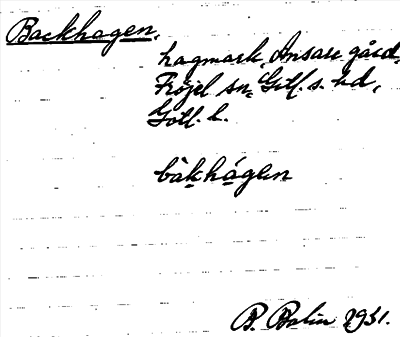 Backhagen.
hagmark, Ansare gård,
Fröjel sn, Gotl. s. hd,
Gotl. l.
bàkhágen
B. Bolin 1931.